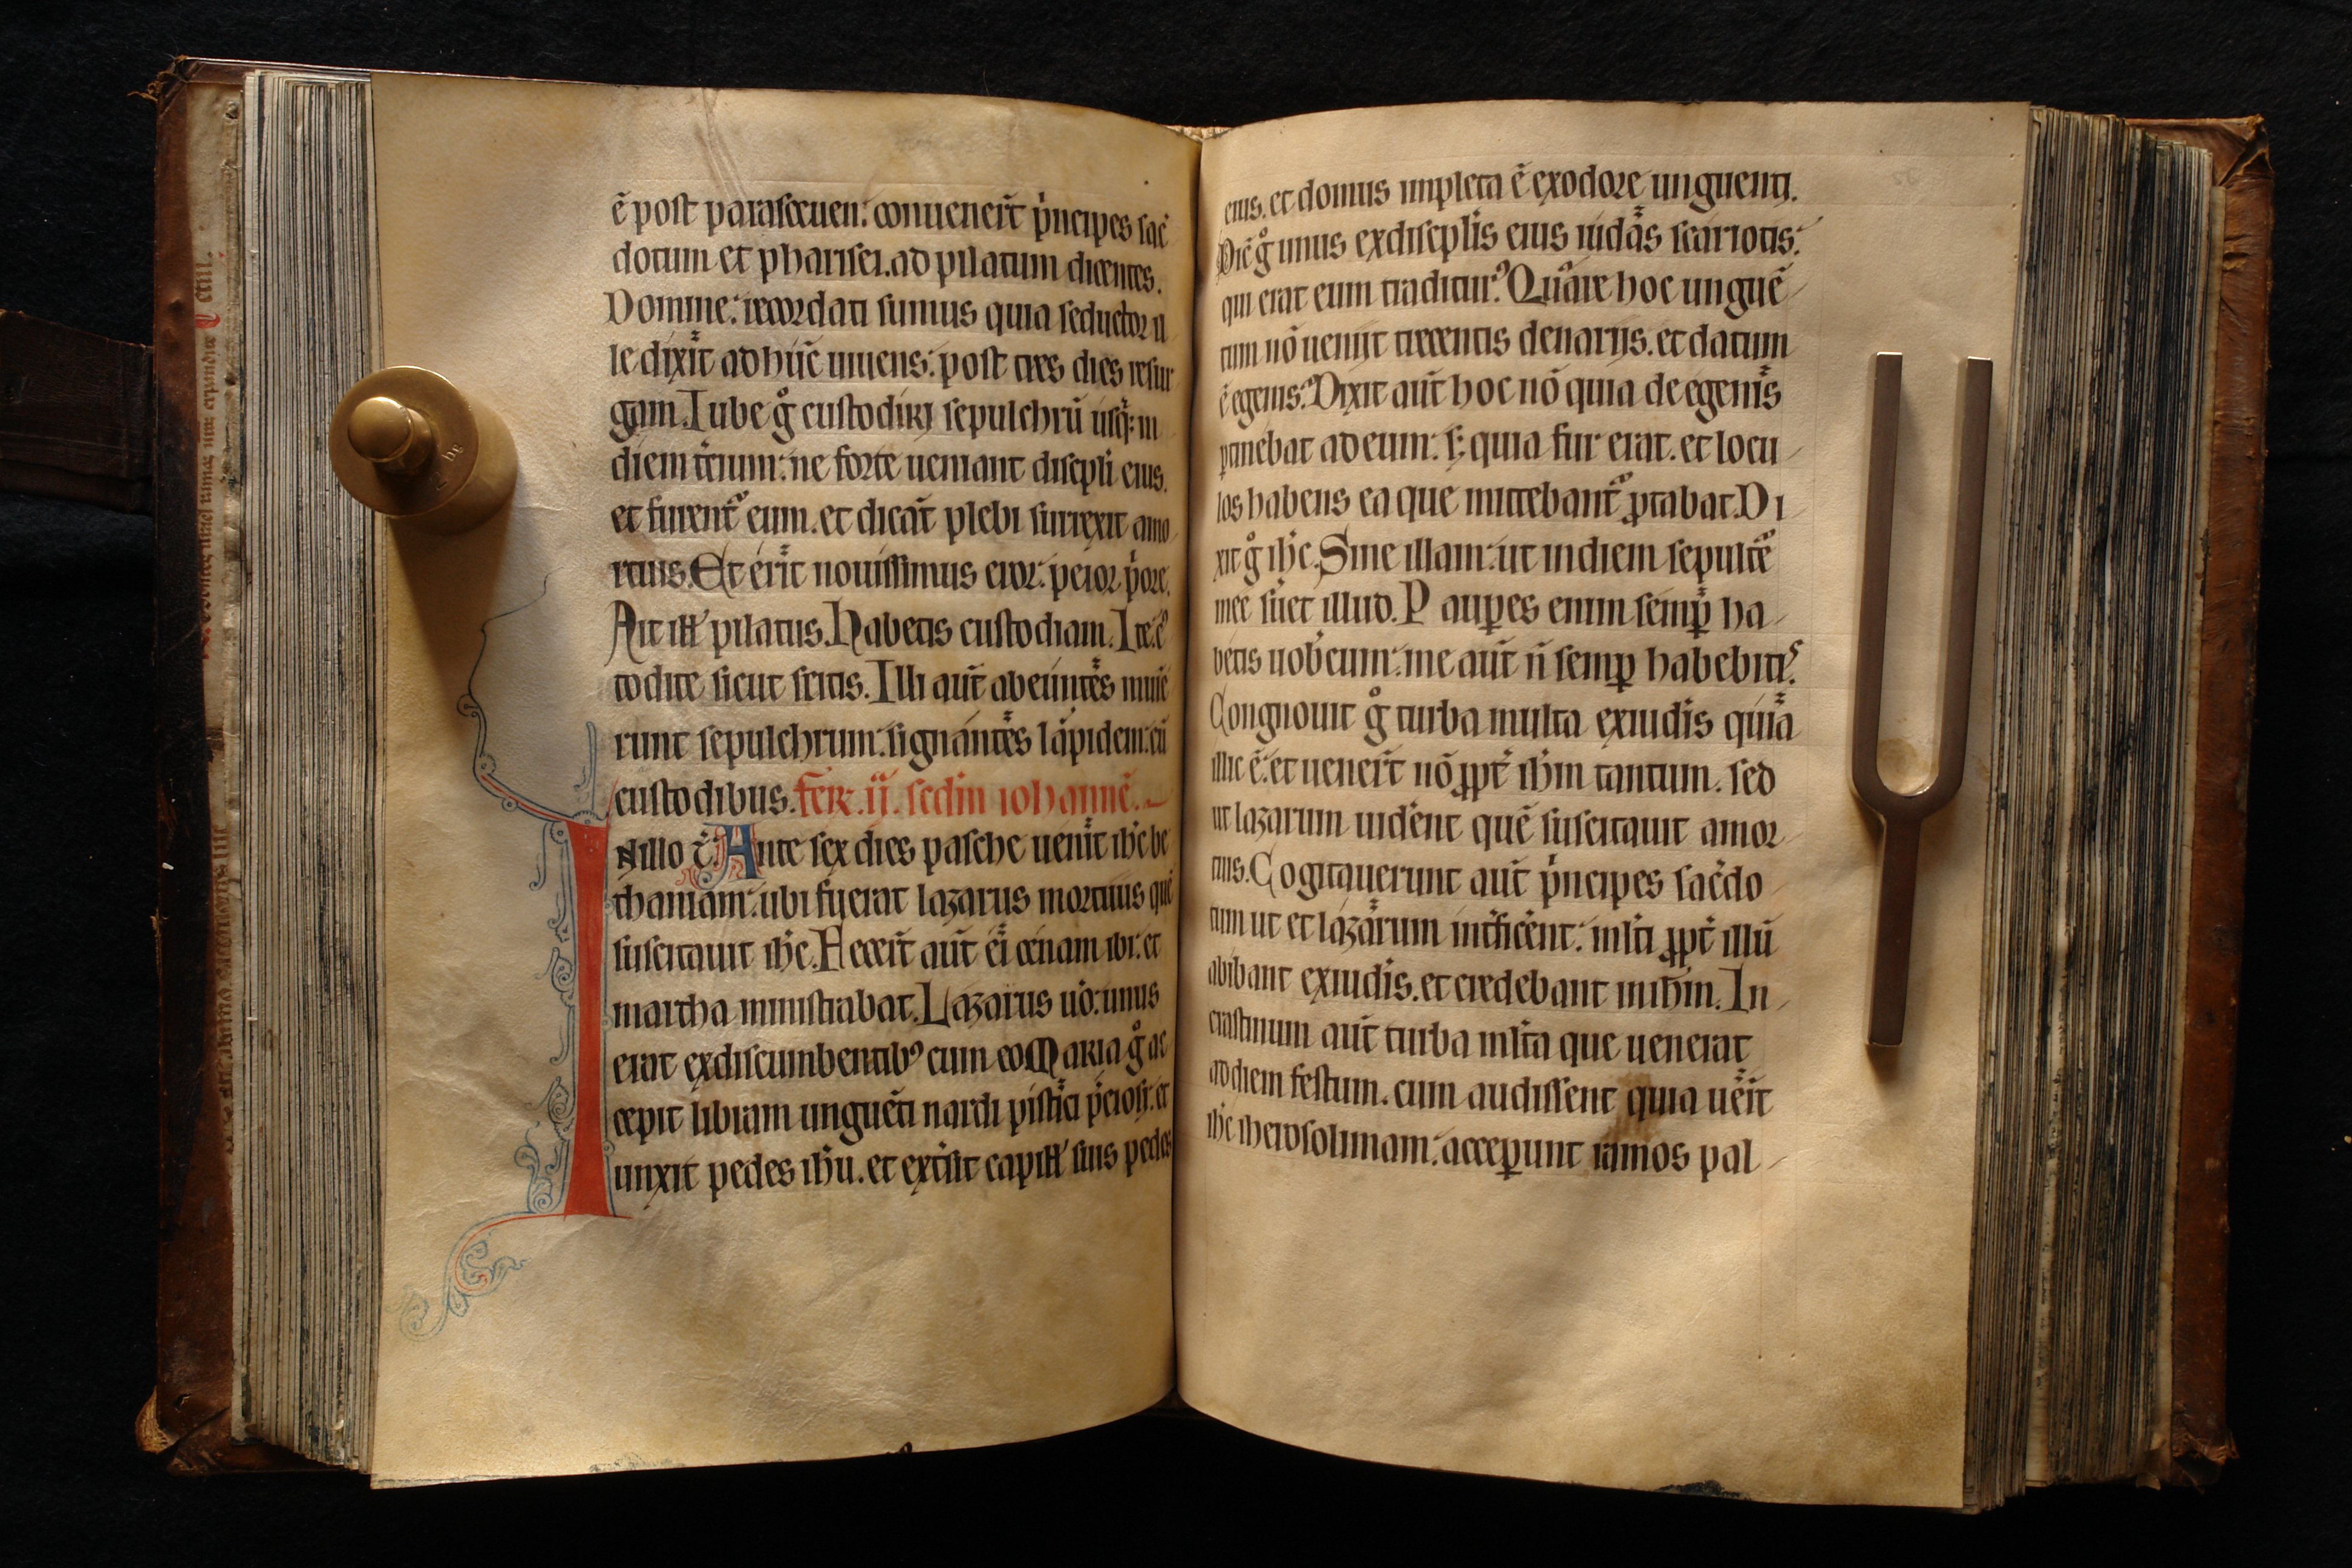 ē post parasceuen: conuenerūt p̍ncipes sac̄
dotum et pharisei. ad pilatum dicentes.
Domine: recordati sumus quia seductor il
le dixit adhuc̄ uiuens: post tres dies resur
gam. Iube gͦ custodiri sepulchrū usq̢: in
diem tc̄ium: ne forte ueniant discipli eius.
et furent᷑ eum. et dicāt plebi surrexit amo
rtuis. Et erit nouissimus error: peior p̍ore.
Ait ill' pilatus. Habetis custodiam. Ite: c᷒
todite sicut scitis. Illi aūt abeuntes muīe
runt sepulchrum: signantes lapidem: cū
custodibus. fer̄. ij. scd̄m iohannē.
Nillo t̄. Ante sex dies pasche uenit ihc̄ be
thaniam: ubi fuerat lazarus mortuus quē
suscitauit ihc̄. Fecer̄t aūt ei cenam ibi: et
martha ministrabat. Lazarus uͦ: unus
erat exdiscumbentibꝰ cum eo Maria gͦ ac
cepit libram unguēti nardi pistici p̄ciosi: et
unxit pedes ihū. et ext̄sit capill' suis pedes
eius. et domus impleta ē exodore unguenti.
Dic̄ gͦ unus exdisciplis eius iudas scariotis:
qui erat eum traditur᷒? Quare hoc unguē
tum nō uenijt trecentis denarijs. et datum
ē egenis? Dixit aūt hoc nō quia de egenis
ꝑtinebat adeum: s; quia fur erat. et locu
los habens ea que mittebant᷑ ꝑtabat. Di
xit gͦ ihc̄. Sine illam: ut indiem sepult᷑e
mee s̄uet illud. Pauꝑes enim semꝑ ha
betis uobc̄um: me aūt n̄ semꝑ habebitis.
Congnouit gͦ turba multa exiudis quia
illic ē: et uener̄t nō ꝓpt̄ ihm̄ tantum. sed
ut lazarum uid̄ent quē suscitauit amor
tuis. Cogitauerunt aūt p̍ncipes sac̄do
tum ut et lazarum int̄ficēnt: ml̄ti ꝓpt̄ illū
abibant exiudis. et credebant inihm̄. In
crastinum aūt turba ml̄ta que uenerat
addiem festum. cum audissent quia uēit
ihc̄ iherosolimam: acceꝑunt ramos pal